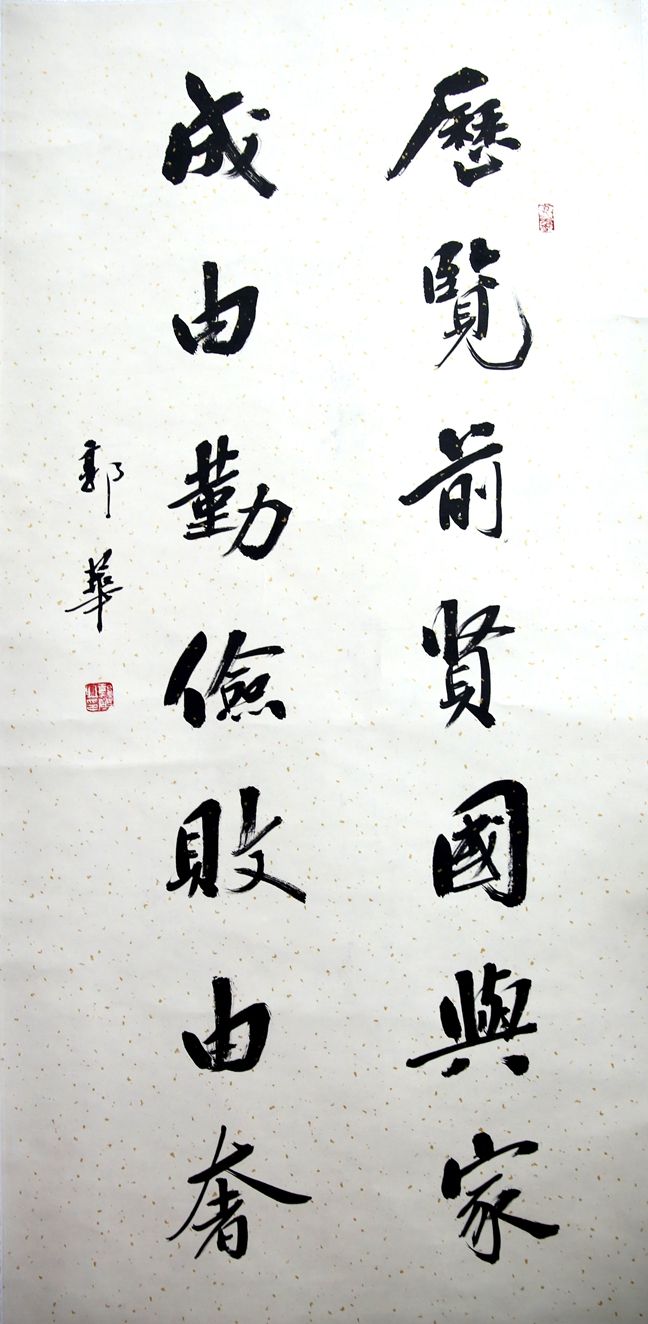 歷覽前賢國與家
成由勤儉敗由奢
郭華